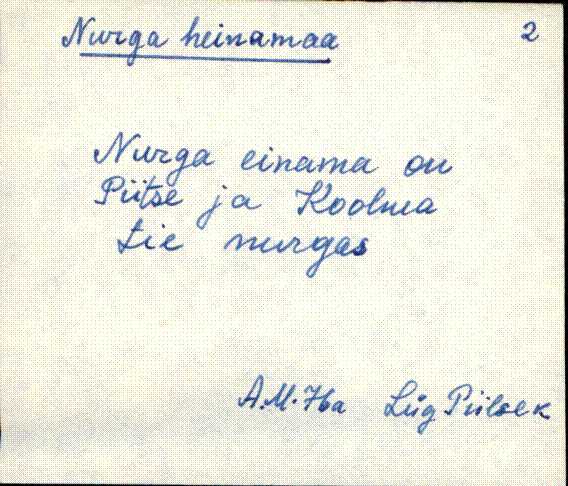 Nurga heinamaa 2
Nurga einama on
Piitse ja Koolma
tie nurgas
A.M. 76a Lüg Piilsek